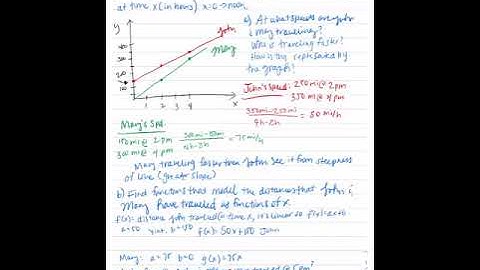 at time x (in hours) x=0 → noon
y
a) At what speeds are John
& Mary traveling?
Who is traveling faster?
How is this represented by
the graph?
John
Mary
400
300
200
100
1 2 3 4 x
John's speed: 250 mi @ 2 pm
350 mi @ 4 pm
350mi-250mi
4h-2h
= 50 mi/h
Mary's Spd.
150 mi @ 2 pm
300 mi @ 4 pm
300mi-150mi
4h-2h
= 75 mi/h
Mary traveling faster than John see it from steepness
of line (greater slope)
b) Find functions that model the distances that John &
Mary have traveled as functions of x.
f(x)= distance John traveled @ time x, it's linear so f(x)=ax+b
a=50 y int. b=150 f(x): 50x+150 John
Mary: a=75 b=0 g(x)=75x